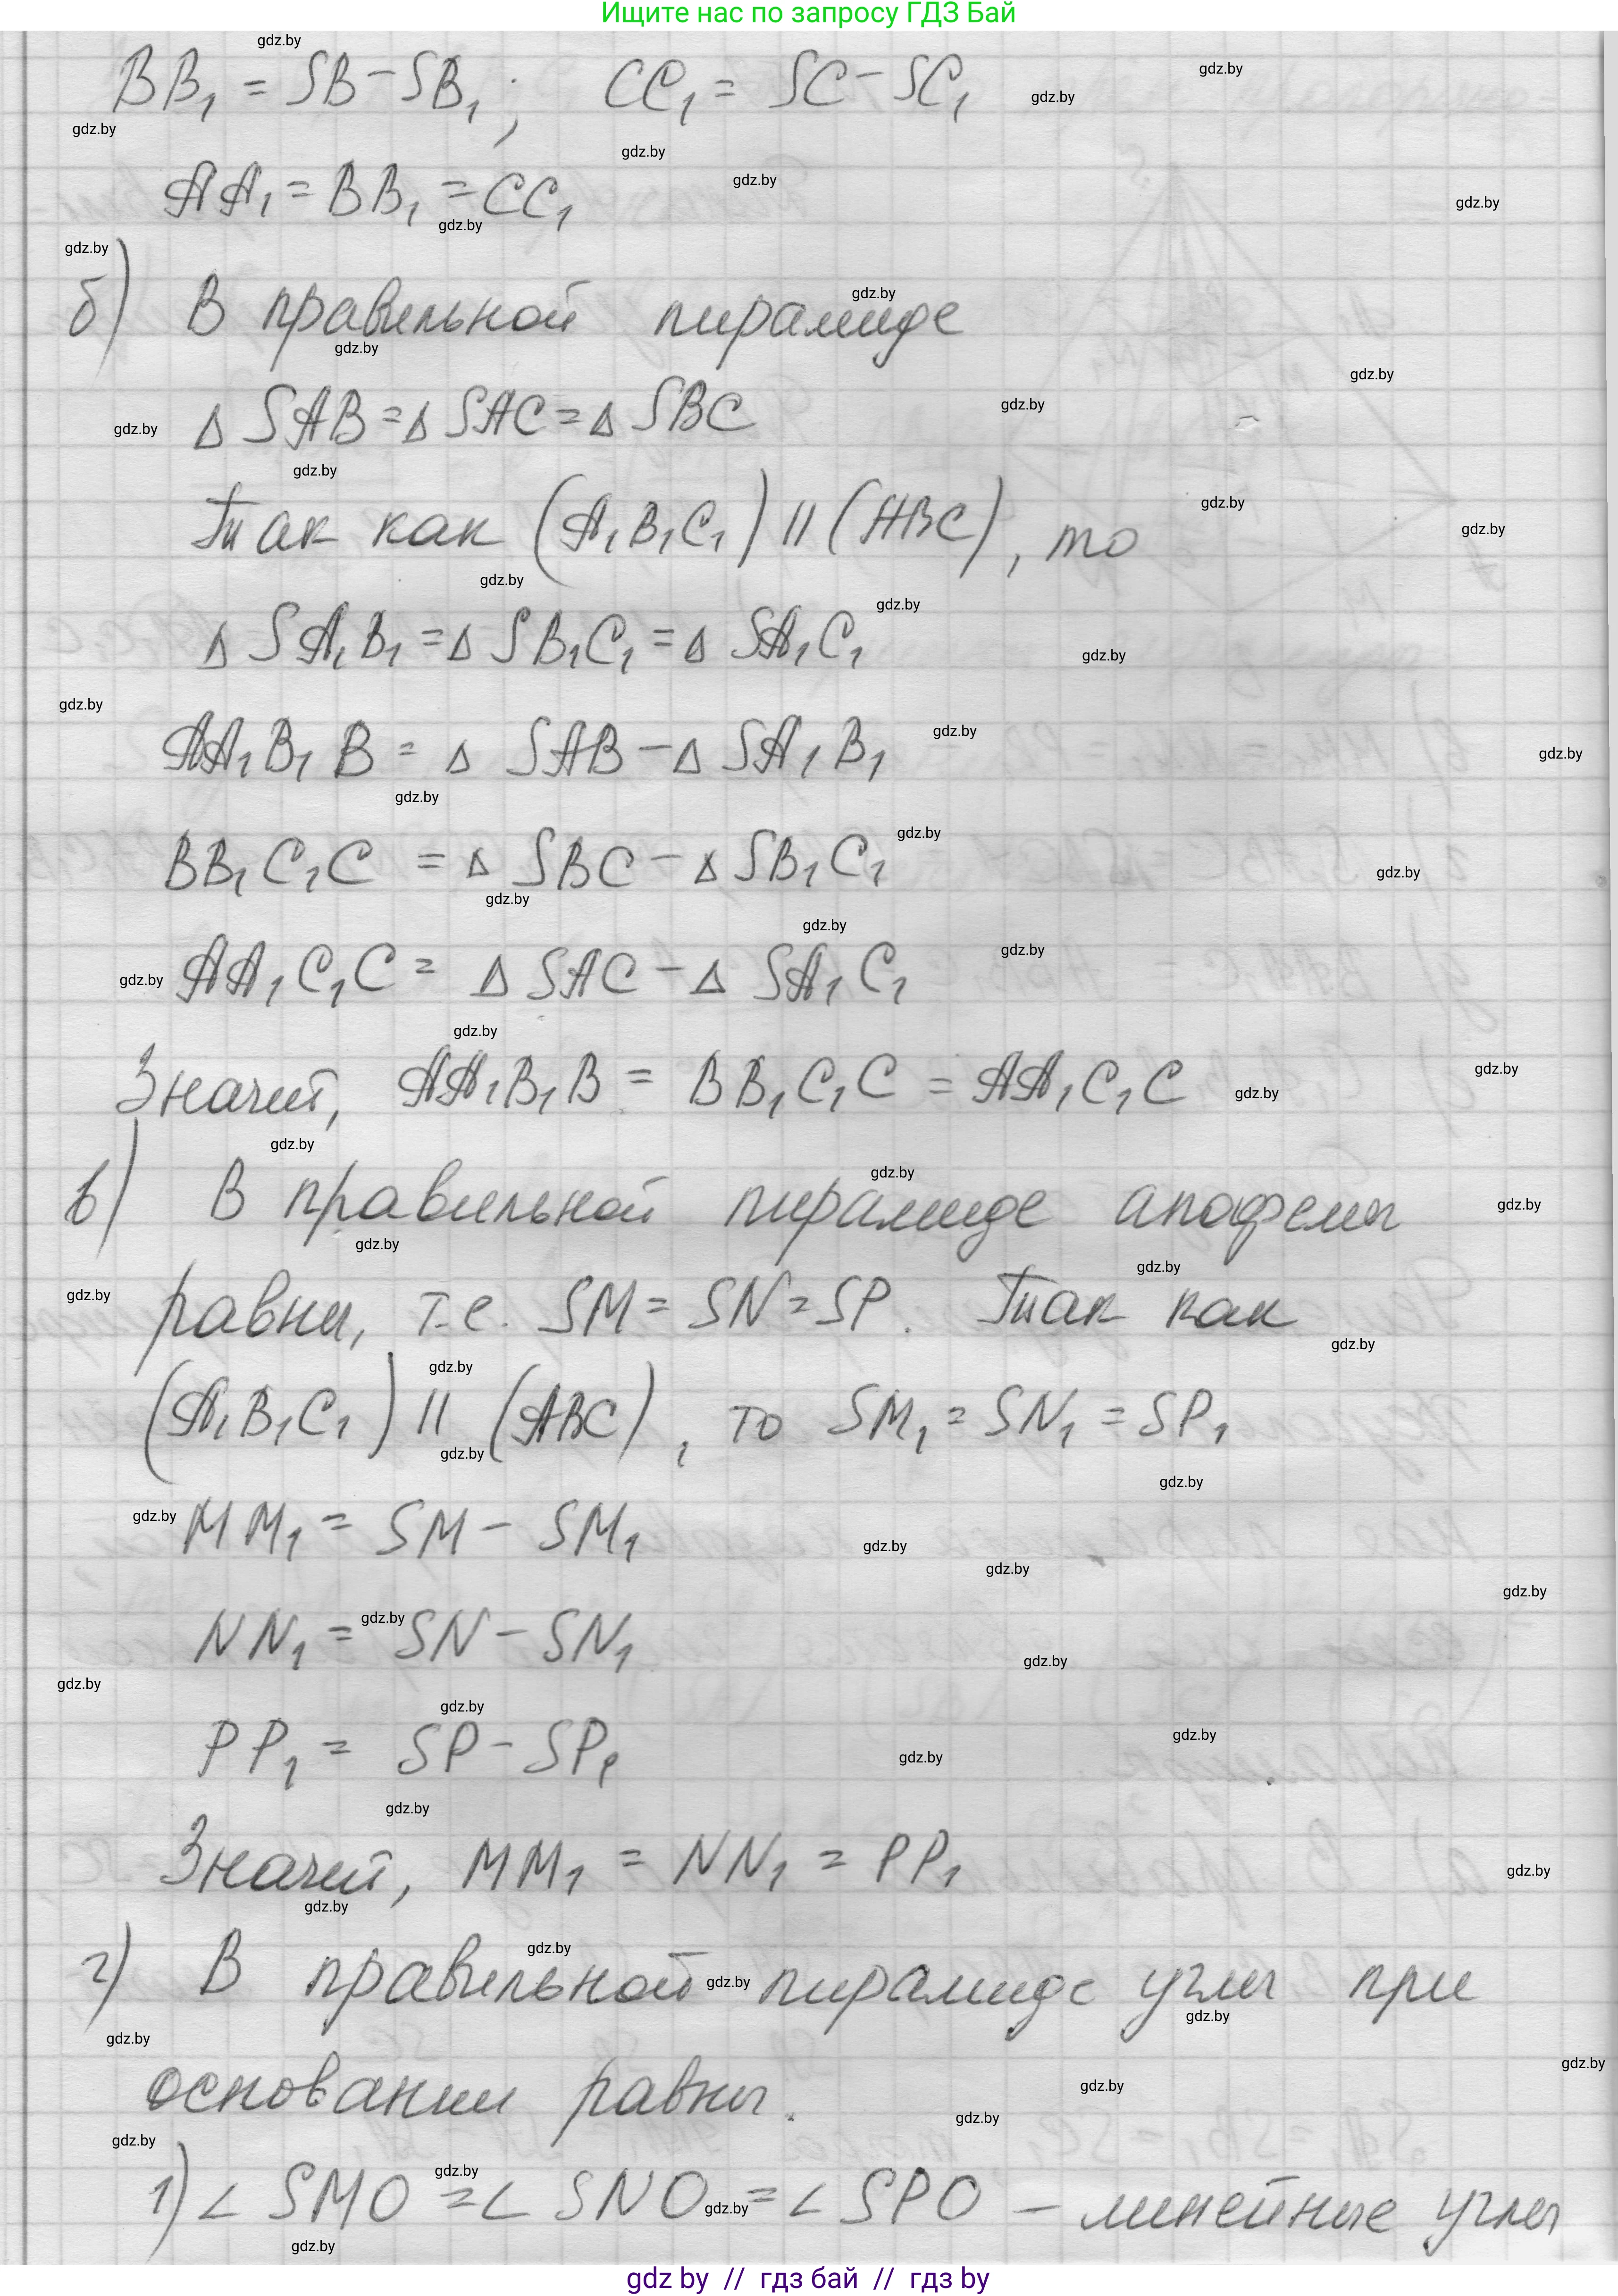 Ищите нас по запросу ГДЗ Бай
BB₁ = SB - SB₁; CC₁ = SC - SC₁
AA₁ = BB₁ = CC₁
б) В правильной пирамиде
△ SAB = △ SAC = △ SBC
Так как (A₁B₁C₁) || (ABC), то
△ SA₁B₁ = △ SB₁C₁ = △ SA₁C₁
AA₁B₁B = △ SAB - △ SA₁B₁
BB₁C₁C = △ SBC - △ SB₁C₁
AA₁C₁C = △ SAC - △ SA₁C₁
Значит, AA₁B₁B = BB₁C₁C = AA₁C₁C
в) В правильной пирамиде апофемы
равны, т.е. SM = SN = SP. Так как
(A₁B₁C₁) || (ABC), то SM₁ = SN₁ = SP₁
MM₁ = SM - SM₁
NN₁ = SN - SN₁
PP₁ = SP - SP₁
Значит, MM₁ = NN₁ = PP₁
г) В правильной пирамиде углы при
основании равны.
1) ∠ SMO = ∠ SNO = ∠ SPO - линейные углы
gdz by // гдз бай // гдз by